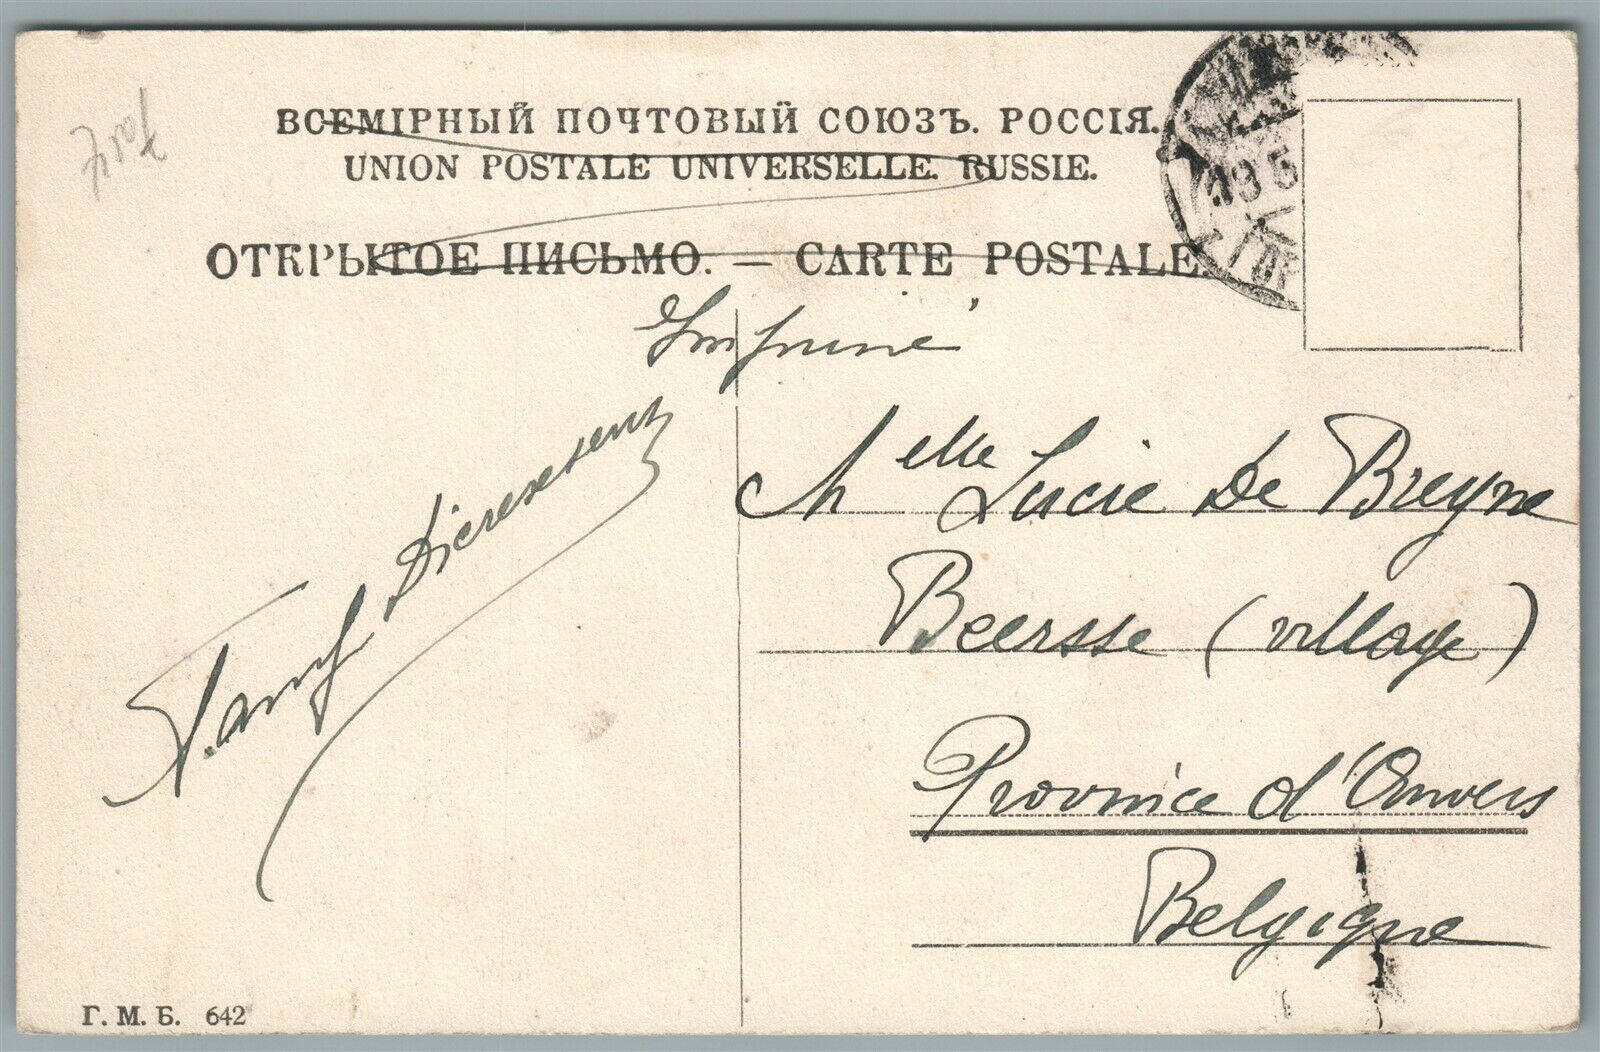 ВСЕМІРНЫЙ ПОЧТОВЫЙ СОЮЗЪ. РОССІЯ.
UNION POSTALE UNIVERSELLE. RUSSIE.
ОТКРЫТОЕ ПИСЬМО. — CARTE POSTALE.
Imprimé
Melle Lucie De Breyne
Beersse (village)
Province d'Anvers
Belgique
Г. М. Б. 642